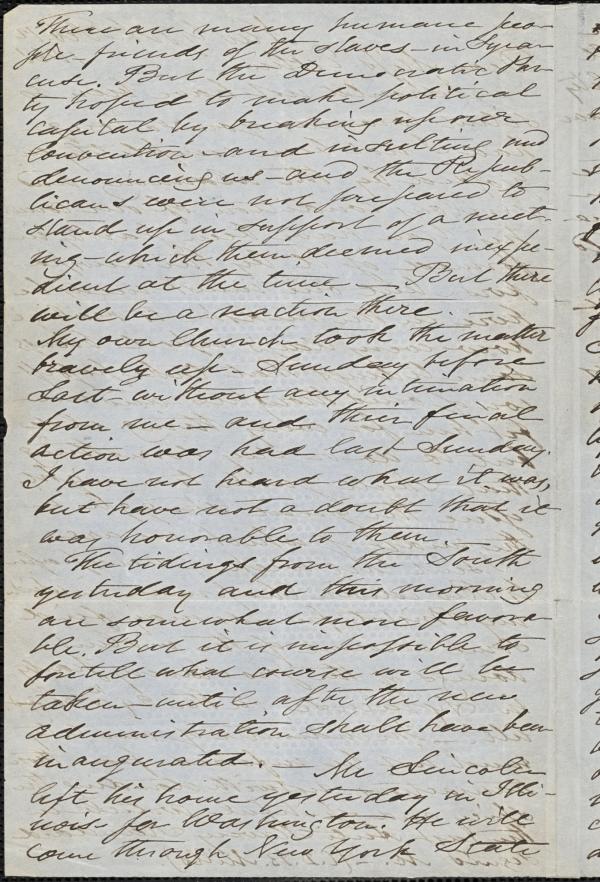 There are many humane peo-
ple - friends of the slaves - in Syra-
cuse. But the Democratic Par-
ty hoped to make political
capital by breaking up our
convention - and insulting and
denouncing us - and the Repub-
licans were not prepared to
stand up in support of a meet-
ing - which them deemed inexpe-
dient at the time — But there
will be a reaction there. —
My own Church took the matter
bravely up - Sunday before
last - without any intimation
from me - and their final
action was had last Sunday.
I have not heard what it was,
but have not a doubt that it
was honorable to them. —
The tidings from the South
yesterday and this morning
are somewhat more favora-
ble. But it is impossible to
foretell what course will be
taken - until after the new
administration shall have been
inaugurated. — Mr Lincoln
left his home yesterday in Illi-
nois for Washington. He will
come through New York State